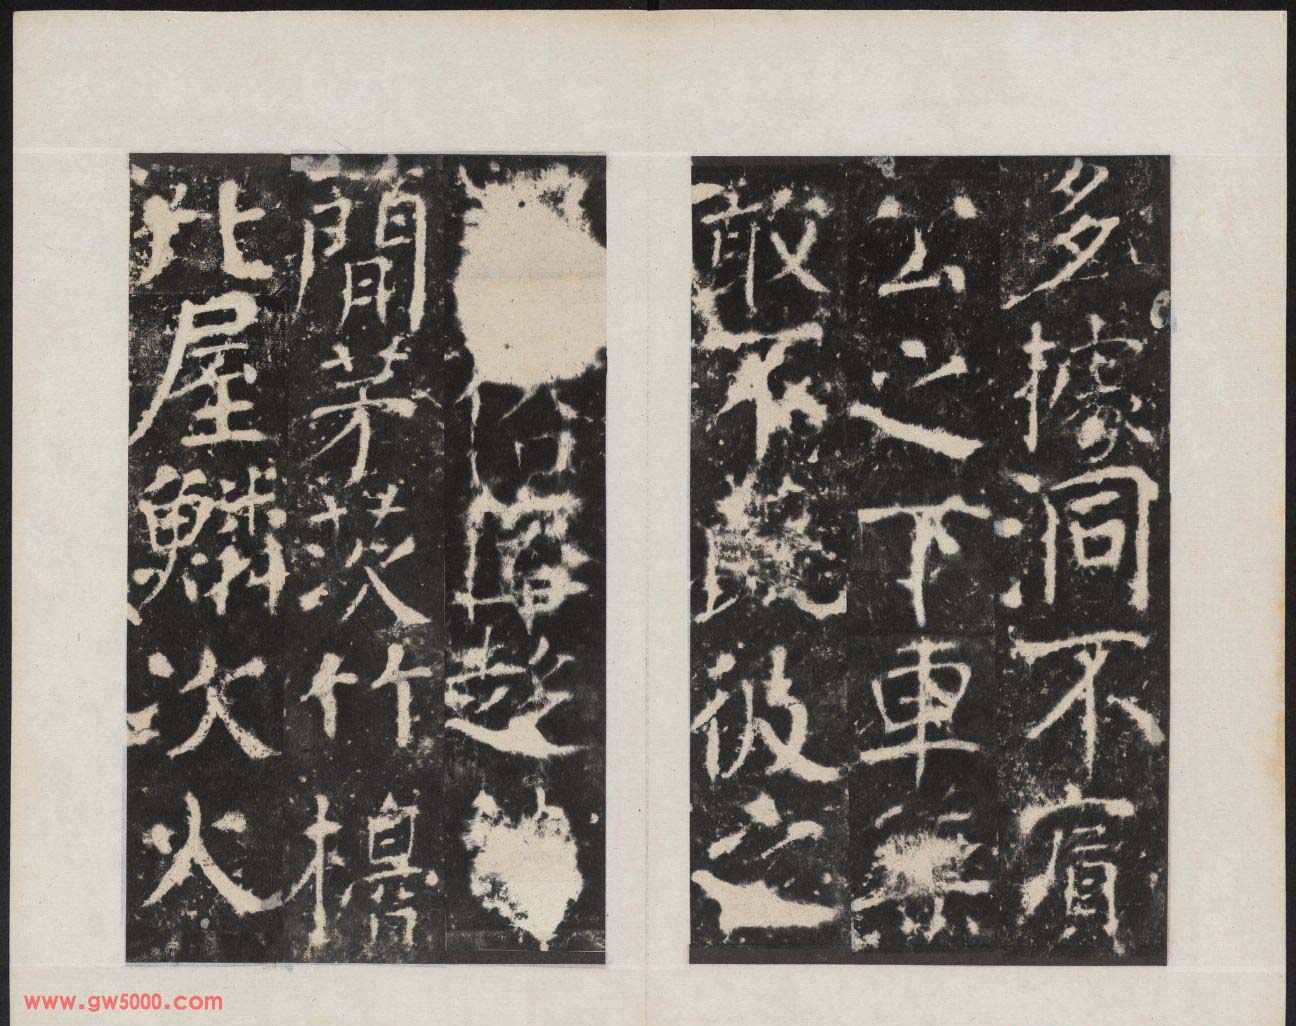 多據洞不賓
公之下車
敢不彼之
趍
間茅茨竹檐
比屋鱗次火
www.gw5000.com